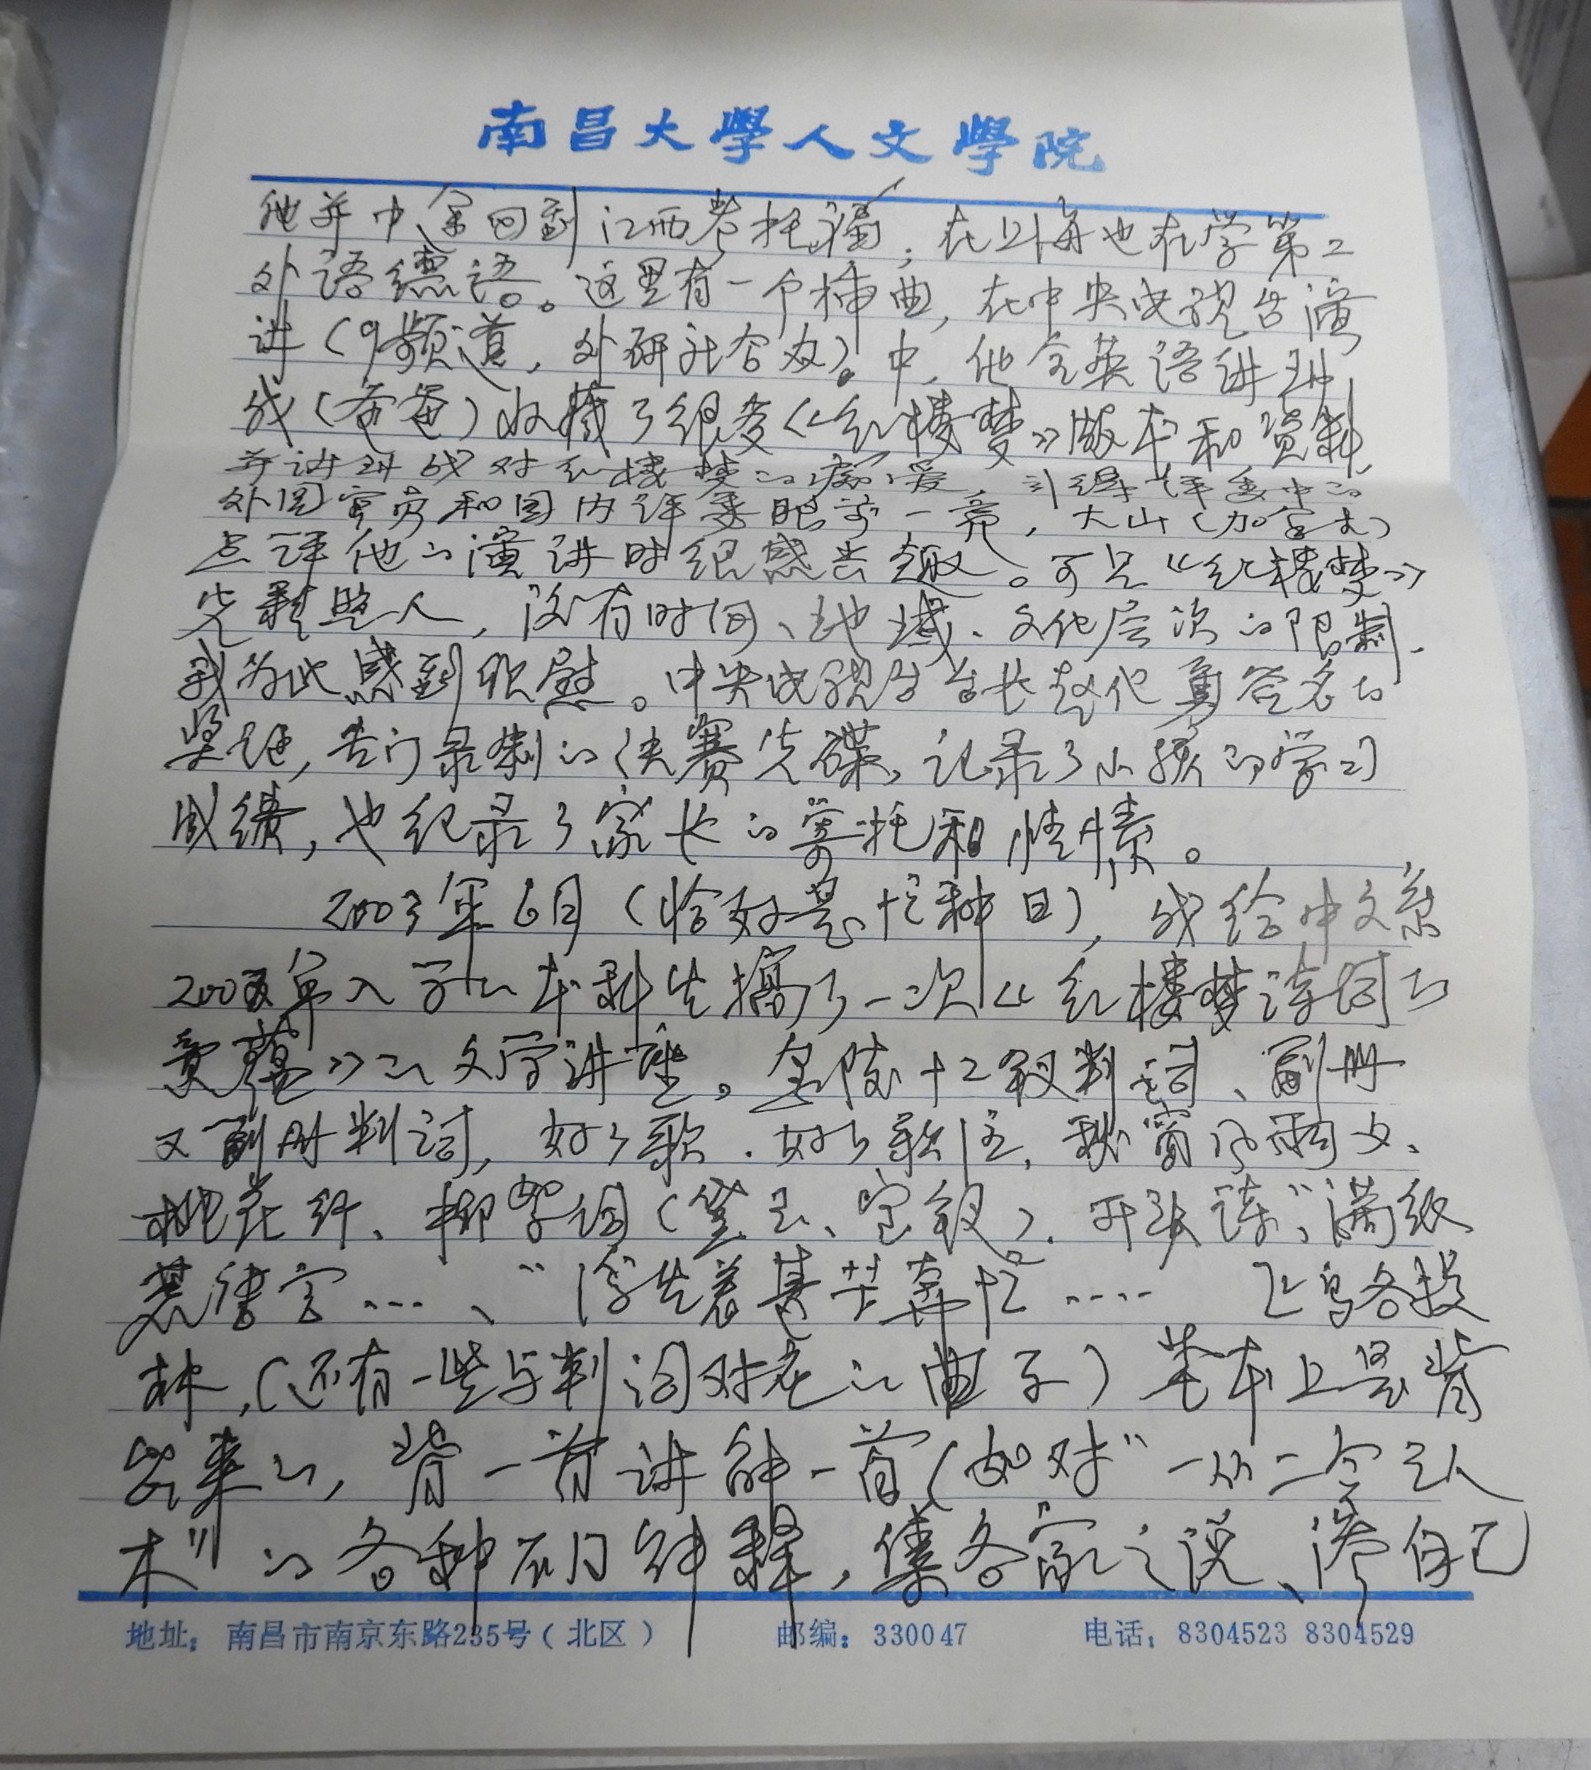 南昌大學人文學院
他并中途回到江西考托福，在上海也在学第二
外语德语。这里有一个插曲，在中央电视台演
讲（9频道，外研社合办）中，他全英语讲到
我（爸爸）收藏了很多《红楼梦》版本和资料，
并讲到我对红楼梦的痴爱，引得评委中的
外国官员和国内评委眼前一亮，大山（加拿大）
点评他的演讲时很感兴趣。可见《红楼梦》
光彩照人，没有时间、地域、文化层次的限制，
我为此感到欣慰。中央电视台台长赵化勇签名的
奖证，专门录制的决赛光碟，记录了小孩的学习
成绩，也纪录了家长的寄托和情愫。
2003年6月（恰好是芒种日），我给中文系
年入学的本科生搞了一次《红楼梦诗词的
意蕴》的文学讲座。金陵十二钗判词、副册
又副册判词，好了歌、好了歌注，秋窗风雨夕、
桃花行、柳絮词（黛玉、宝钗）、开头诗"满纸
荒唐言....、"浮生着甚苦奔忙.... 飞鸟各投
林，（还有一些与判词对应的曲子）基本上是背
出来的，背一首讲解一首（如对"一从二令三人
木"的各种解释，集各家之说、谈自己
地址：南昌市南京东路235号（北区） 邮编：330047 电话：8304523 8304529